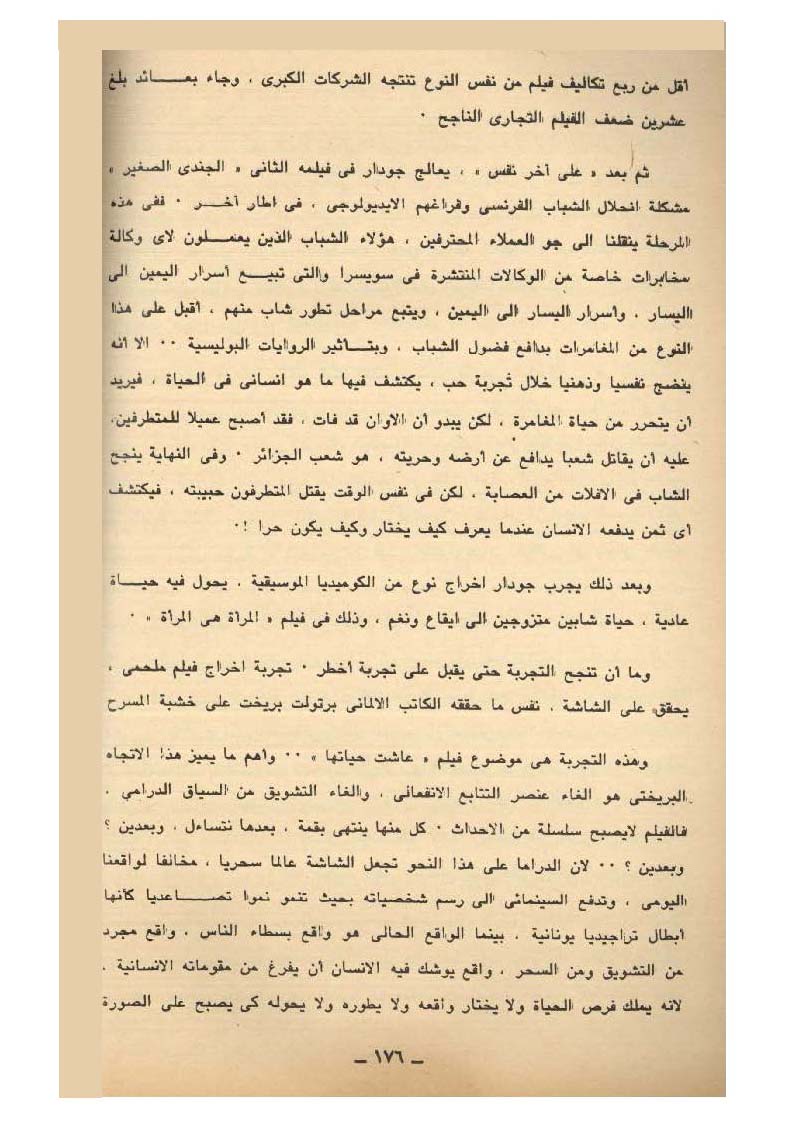 أقل من ربع تكاليف فيلم من نفس النوع تنتجه الشركات الكبرى ، وجاء بعـــائد بلغ
عشرين ضعف الفيلم التجارى الناجح ٠
ثم بعد « على آخر نفس » ، يعالج جودار فى فيلمه الثانى « الجندى الصغير »
مشكلة انحلال الشباب الفرنسى وفراغهم الايديولوجى ، فى اطار آخـــر ٠ ففى هذه
المرحلة ينقلنا الى جو العملاء المحترفين ، هؤلاء الشباب الذين يعمـــلون لاى وكالة
مخابرات خاصة من الوكالات المنتشرة فى سويسرا والتى تبيـــع أسرار اليمين الى
اليسار ، وأسرار اليسار الى اليمين ، ويتبع مراحل تطور شاب منهم ، أقبل على هذا
النوع من المغامرات بدافع فضول الشباب ، وبتـــأثير الروايات البوليسية ٠٠ الا أنه
ينضج نفسيا وذهنيا خلال تجربة حب ، يكتشف فيها ما هو انسانى فى الحياة ، فيريد
أن يتحرر من حياة المغامرة ، لكن يبدو أن الاوان قد فات ، فقد أصبح عميلا للمتطرفين،
عليه أن يقاتل شعبا يدافع عن أرضه وحريته ، هو شعب الجزائر ٠ وفى النهاية ينجح
الشاب فى الافلات من العصابة ، لكن فى نفس الوقت يقتل المتطرفون حبيبته ، فيكتشف
أى ثمن يدفعه الانسان عندما يعرف كيف يختار وكيف يكون حرا !٠
وبعد ذلك يجرب جودار اخراج نوع من الكوميديا الموسيقية ، يحول فيه حيـــاة
عادية ، حياة شابين متزوجين الى ايقاع ونغم ، وذلك فى فيلم « المرأة هى المرأة » ٠
وما أن تنجح التجربة حتى يقبل على تجربة أخطر ٠ تجربة اخراج فيلم ملحمى ،
يحقق على الشاشة ، نفس ما حققه الكاتب الالمانى برتولت بريخت على خشبة المسرح
وهذه التجربة هى موضوع فيلم « عاشت حياتها » ٠٠ وأهم ما يميز هذا الاتجاه
البريختى هو الغاء عنصر التتابع الانفعالى ، والغاء التشويق من السياق الدرامي ،
فالفيلم لايصبح سلسلة من الاحداث ٠ كل منها ينتهى بقمة ، بعدها نتساءل ، وبعدين ؟
وبعدين ؟ ٠٠ لان الدراما على هذا النحو تجعل الشاشة عالما سحريا ، مخالفا لواقعنا
اليومى ، وتدفع السينمائى الى رسم شخصياته بحيث تنمو نموا تصـــاعديا كأنها
أبطال تراجيديا يونانية ، بينما الواقع الحالى هو واقع بسطاء الناس ، واقع مجرد
من التشويق ومن السحر ، واقع يوشك فيه الانسان أن يفرغ من مقوماته الانسانية ،
لانه يملك فرص الحياة ولا يختار واقعه ولا يطوره ولا يحوله كى يصبح على الصورة
ـ ١٧٦ ـ